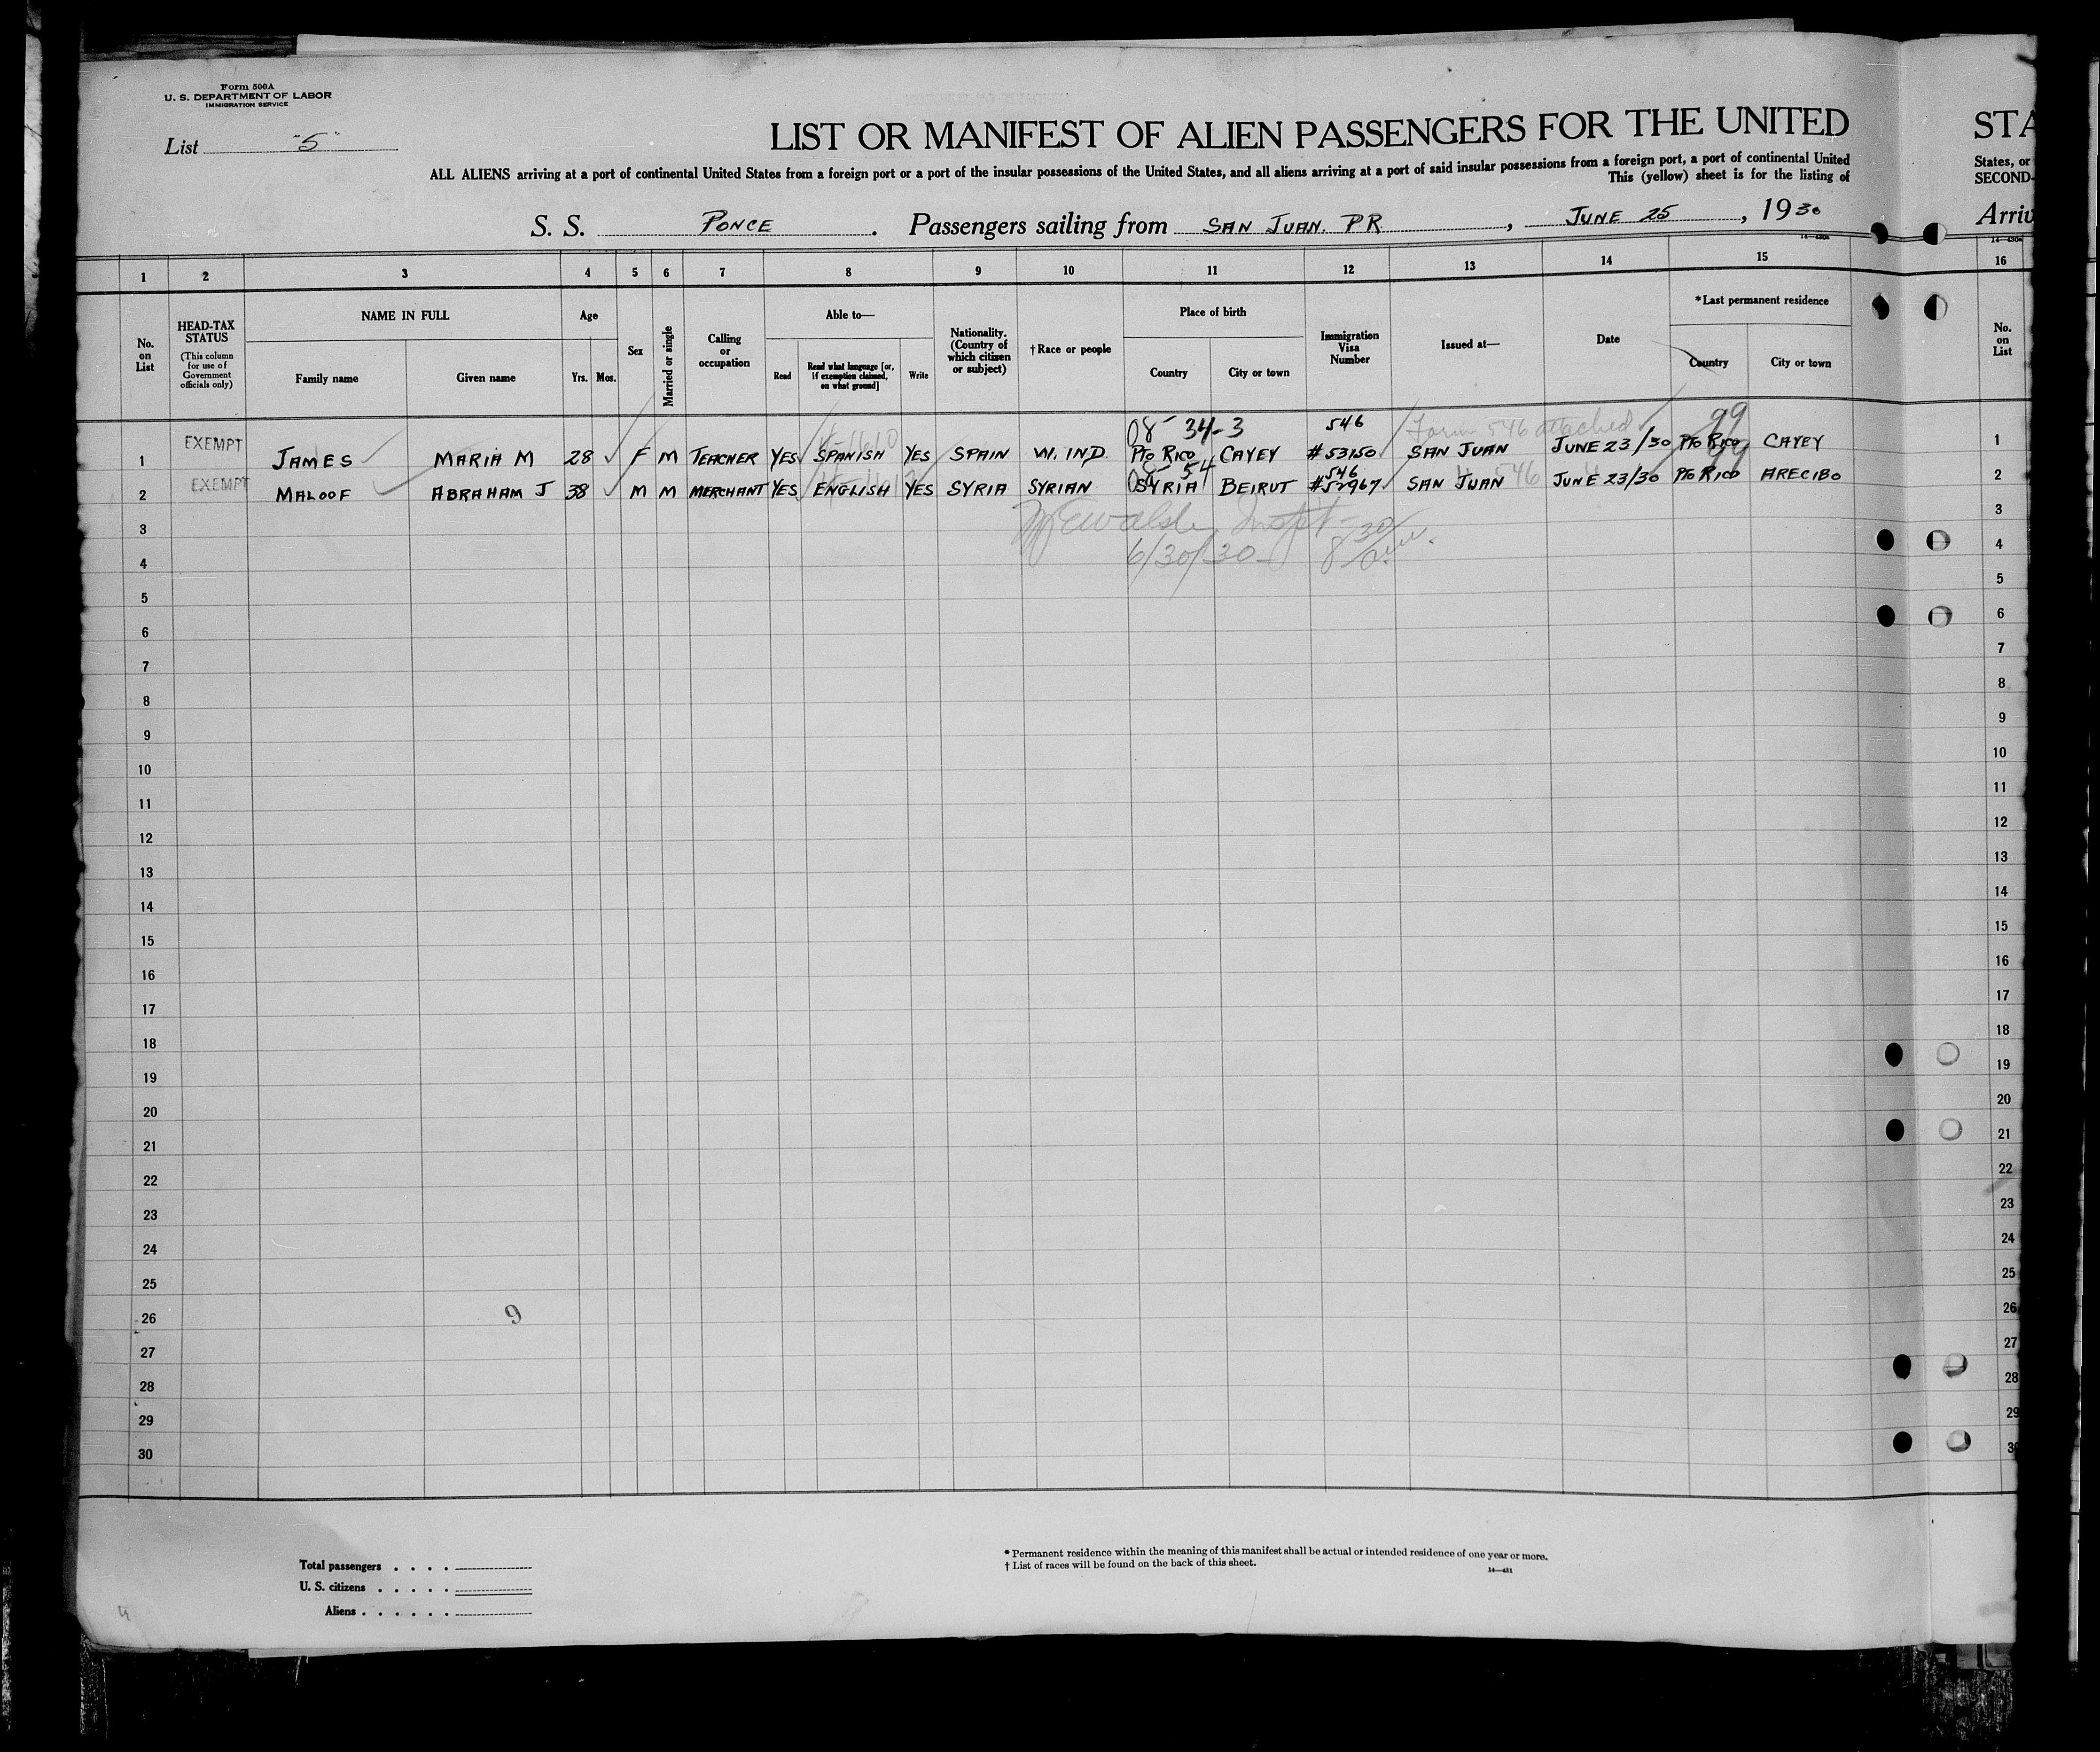 Form 500A
U. S. DEPARTMENT OF LABOR
IMMIGRATION SERVICE
List "5"
LIST OR MANIFEST OF ALIEN PASSENGERS FOR THE UNITED
STA
ALL ALIENS arriving at a port of continental United States from a foreign port or a port of the insular possessions of the United States, and all aliens arriving at a port of said insular possessions from a foreign port, a port of continental United
States, or
This (yellow) sheet is for the listing of
SECOND-
S. S. PONCE . Passengers sailing from SAN JUAN. P.R. , JUNE 25 , 1930
Arriv
14—430a
1 2 3 4 5 6 7 8 9 10 11 12 13 14 15 16
No. on List
HEAD-TAX STATUS
(This column for use of Government officials only)
NAME IN FULL
Family name
Given name
Age
Yrs. Mos.
Sex
Married or single
Calling or occupation
Able to—
Read
Read what language [or, if exemption claimed, on what ground]
Write
Nationality. (Country of which citizen or subject)
†Race or people
Place of birth
Country
City or town
Immigration Visa Number
Issued at—
Date
*Last permanent residence
Country
City or town
No. on List
08 34-3 546 Form 546 attached 99
1 EXEMPT JAMES MARIA M 28 F M TEACHER YES SPANISH YES SPAIN W. IND. PTO RICO CAYEY #53150 SAN JUAN JUNE 23/30 PTO RICO CAYEY 1
08 54 546 546 99
2 EXEMPT MALOOF ABRAHAM J 38 M M MERCHANT YES ENGLISH YES SYRIA SYRIAN SYRIA BEIRUT #52967 SAN JUAN JUNE 23/30 PTO RICO ARECIBO 2
3 Inspt 3
4 6/30/30 8 30 4
5 5
6 6
7 7
8 8
9 9
10 10
11 11
12 12
13 13
14 14
15 15
16 16
17 17
18 18
19 19
20 20
21 21
22 22
23 23
24 24
25 25
26 9 26
27 27
28 28
29 29
30
Total passengers . . . .
U. S. citizens . . . . .
Aliens . . . . . .
* Permanent residence within the meaning of this manifest shall be actual or intended residence of one year or more.
† List of races will be found on the back of this sheet.
14—431